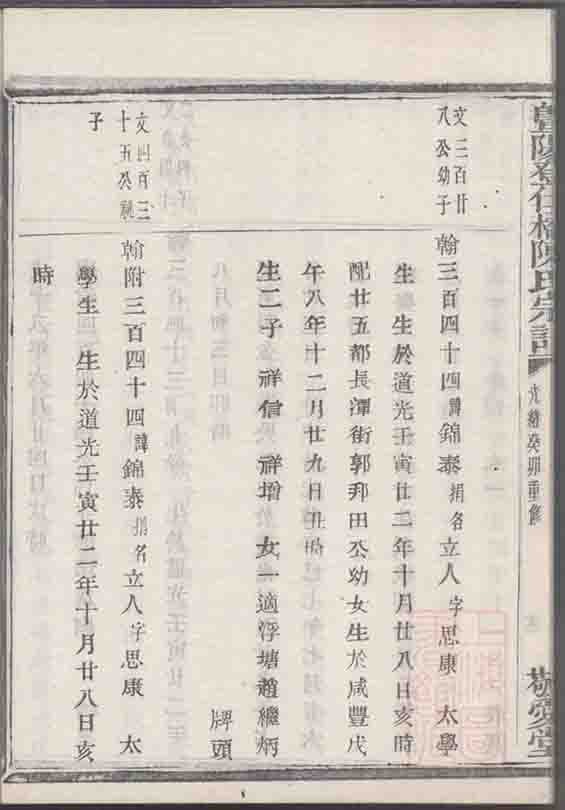 陳氏宗譜
光緒癸卯重修
敬愛堂
文三百廿
八公幼子
翰三百四十四諱錦泰捐名立人字思康 太學
生 生於道光壬寅廿二年十月廿八日亥時
配廿五都長潭街郭邦田公幼女生於咸豐戊
午八年十二月廿九日丑時
生二子 祥信 祥增 女一適浮塘趙繼炳
牌頭
文四百三
十五公祧
子
翰附三百四十四諱錦泰捐名立人字思康 太
學生 生於道光壬寅廿二年十月廿八日亥
時